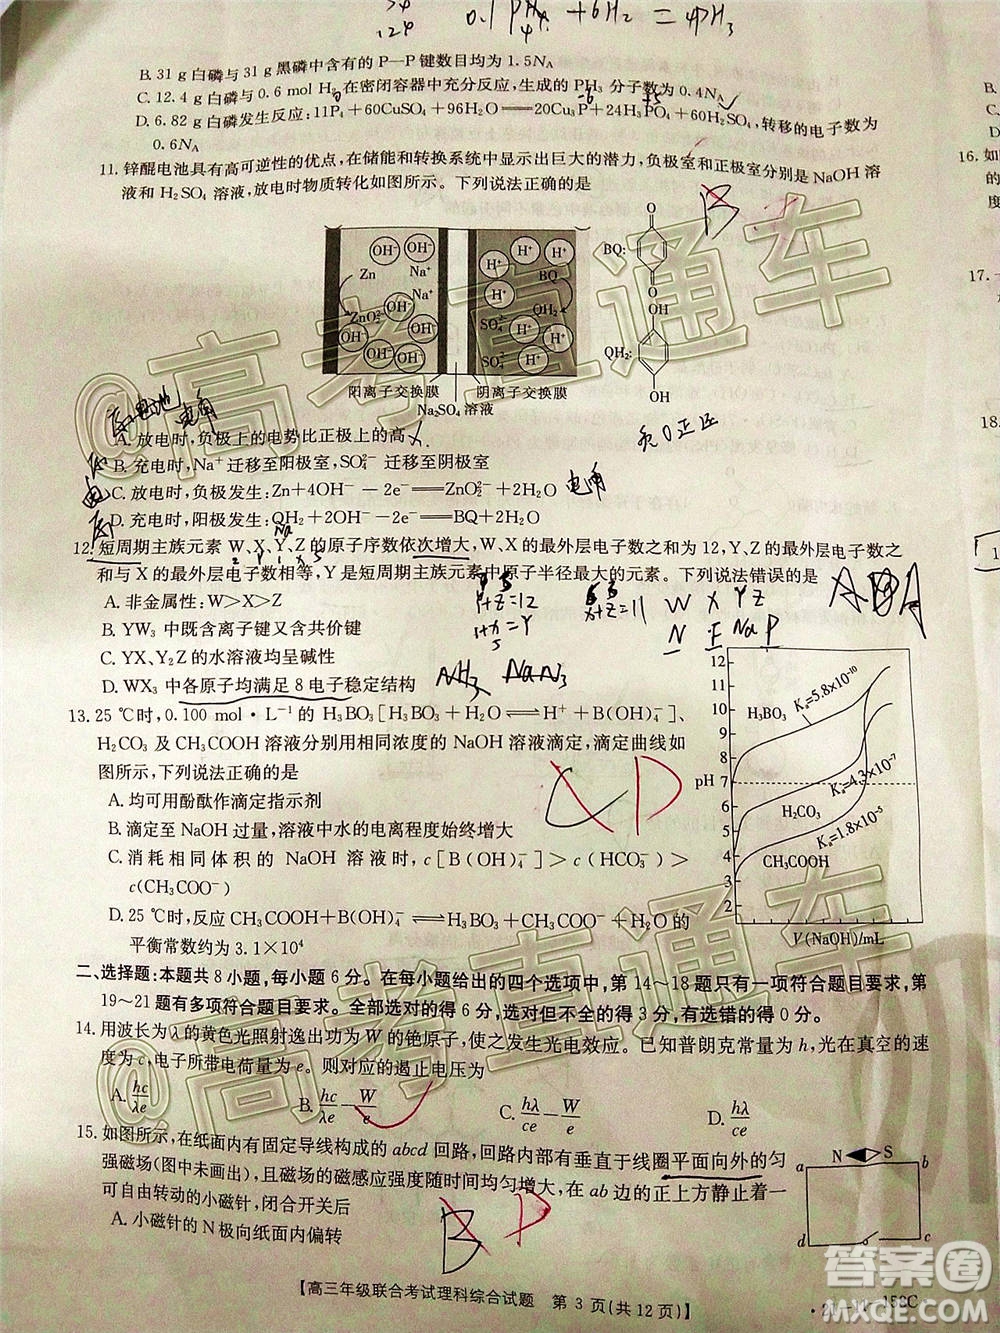 0.1 P₄ + 6H₂ = 4PH₃
B. 31 g 白磷与 31 g 黑磷中含有的 P—P 键数目均为 1.5Nᴀ
C. 12.4 g 白磷与 0.6 mol H₂ 在密闭容器中充分反应，生成的 PH₃ 分子数为 0.4Nᴀ
D. 6.82 g 白磷发生反应：11P₄+60CuSO₄+96H₂O══20Cu₃P+24H₃PO₄+60H₂SO₄，转移的电子数为
0.6Nᴀ
11. 锌醌电池具有高可逆性的优点，在储能和转换系统中显示出巨大的潜力，负极室和正极室分别是 NaOH 溶
液和 H₂SO₄ 溶液，放电时物质转化如图所示。下列说法正确的是
B
OH⁻ OH⁻ H⁺ H⁺ BQ:
Zn Na⁺ H⁺ BQ H⁺
OH⁻ Na⁺ H⁺
ZnO₂²⁻ OH⁻ SO₄²⁻ H⁺ QH₂:
OH⁻ OH⁻ SO₄²⁻ H⁺
阳离子交换膜 阴离子交换膜
Na₂SO₄ 溶液
A. 放电时，负极上的电势比正极上的高
B. 充电时，Na⁺ 迁移至阳极室，SO₄²⁻ 迁移至阴极室
C. 放电时，负极发生：Zn+4OH⁻－2e⁻══ZnO₂²⁻+2H₂O
D. 充电时，阳极发生：QH₂+2OH⁻－2e⁻══BQ+2H₂O
12. 短周期主族元素 W、X、Y、Z 的原子序数依次增大，W、X、Z 的最外层电子数之和为 12，Y、Z 的最外层电子数之
和与 X 的最外层电子数相等，Y 是短周期主族元素中原子半径最大的元素。下列说法错误的是
A. 非金属性：W>X>Z
B. YW₃ 中既含离子键又含共价键
C. YX、Y₂Z 的水溶液均呈碱性
D. WX₃ 中各原子均满足 8 电子稳定结构
W X Y Z
N F Na P
NH₃ NaN₃
13. 25 ℃时，0.100 mol·L⁻¹ 的 H₃BO₃[H₃BO₃+H₂O⇌H⁺+B(OH)₄⁻]、
H₂CO₃ 及 CH₃COOH 溶液分别用相同浓度的 NaOH 溶液滴定，滴定曲线如
图所示，下列说法正确的是
A. 均可用酚酞作滴定指示剂
B. 滴定至 NaOH 过量，溶液中水的电离程度始终增大
C. 消耗相同体积的 NaOH 溶液时，c[B(OH)₄⁻]>c(HCO₃⁻)>
c(CH₃COO⁻)
D. 25℃时，反应 CH₃COOH+B(OH)₄⁻⇌H₃BO₃+H₂O+CH₃COO⁻ 的
平衡常数约为 3.1×10⁴
12
11
10
9
8
pH 7
6
5
4
3
2
H₃BO₃ Kₐ=5.8×10⁻¹⁰
H₂CO₃ Kₐ=4.3×10⁻⁷
CH₃COOH Kₐ=1.8×10⁻⁵
V(NaOH)/mL
二、选择题：本题共 8 小题，每小题 6 分。在每小题给出的四个选项中，第 14～18 题只有一项符合题目要求，第
19～21 题有多项符合题目要求。全部选对的得 6 分，选对但不全的得 3 分，有选错的得 0 分。
14. 用波长为 λ 的黄色光照射逸出功为 W 的铯原子，能使之发生光电效应。已知普朗克常量为 h，光在真空的速
度为 c，电子所带电荷量为 e。则对应的遏止电压为
A. hc/λe B. hc/λe－W/e C. hλ/ce－W/e D. hλ/ce
15. 如图所示，在纸面内有固定导线构成的 abcd 回路，回路内部有垂直于线圈平面向外的匀
强磁场（图中未画出），且磁场的磁感应强度随时间均匀增大，在 ab 边的正上方静止着一
可自由转动的小磁针，闭合开关后
A. 小磁针的 N 极向纸面内偏转
B D
N S
a b
d c
【高三年级联合考试理科综合试题 第 3 页（共 12 页）】
158C
16. 如
17.
18.
@高考直通车
@高考直通车
答案圈